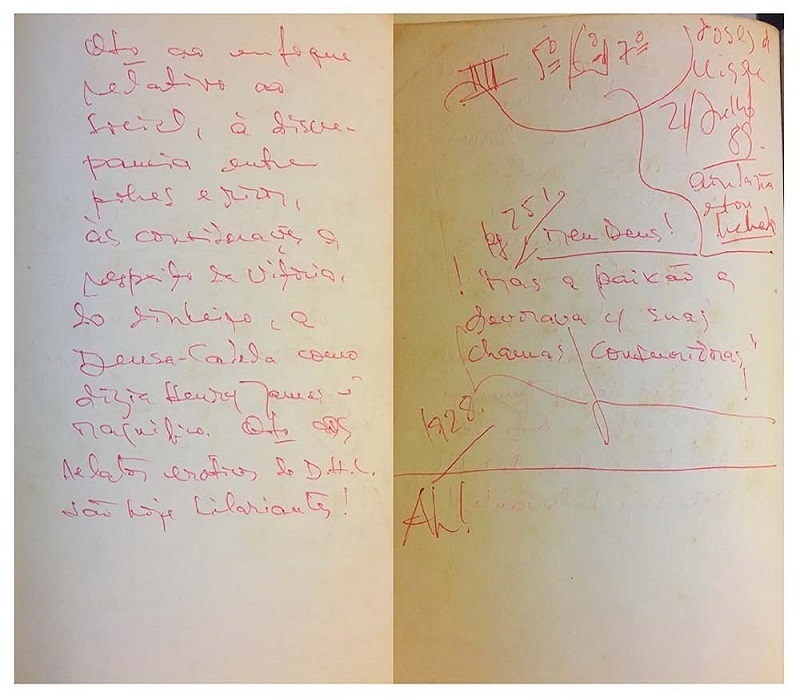 Qto ao enfoque
relativo ao
social, à discre-
pancia entre
pobres e ricos,
às considerações a
respeito da Vitória
do dinheiro, a
Deusa-Cadela como
dizia Henry James é
magnífico. Qto aos
relatos eroticos do D.H.L.
são hoje hilariantes!
5º 6º 7º
doses d
21/Julho
89.
ainda não
estou
bebada
pg 251,
meu Deus!
! "mas a paixão a
devorava c/ suas
chamas consumidoras"!
1928.
Ah!